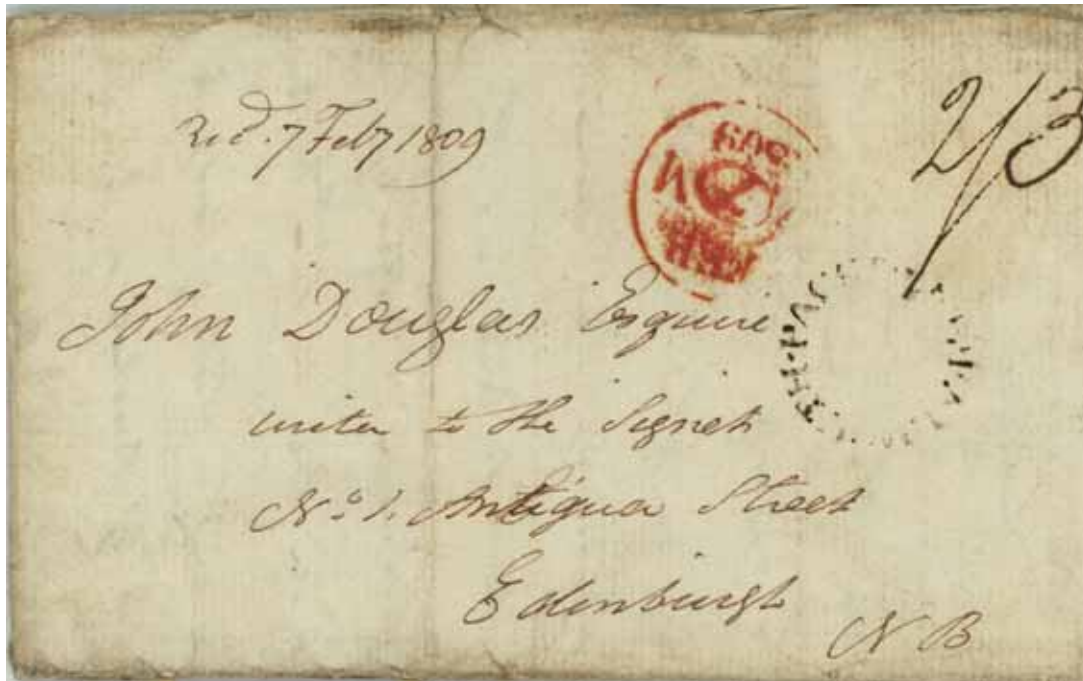 recd. 7 Feby 1809
2/3
John Douglas Esquire
writer to the Signet
No. 1. Antigua Street
Edinburgh
N B